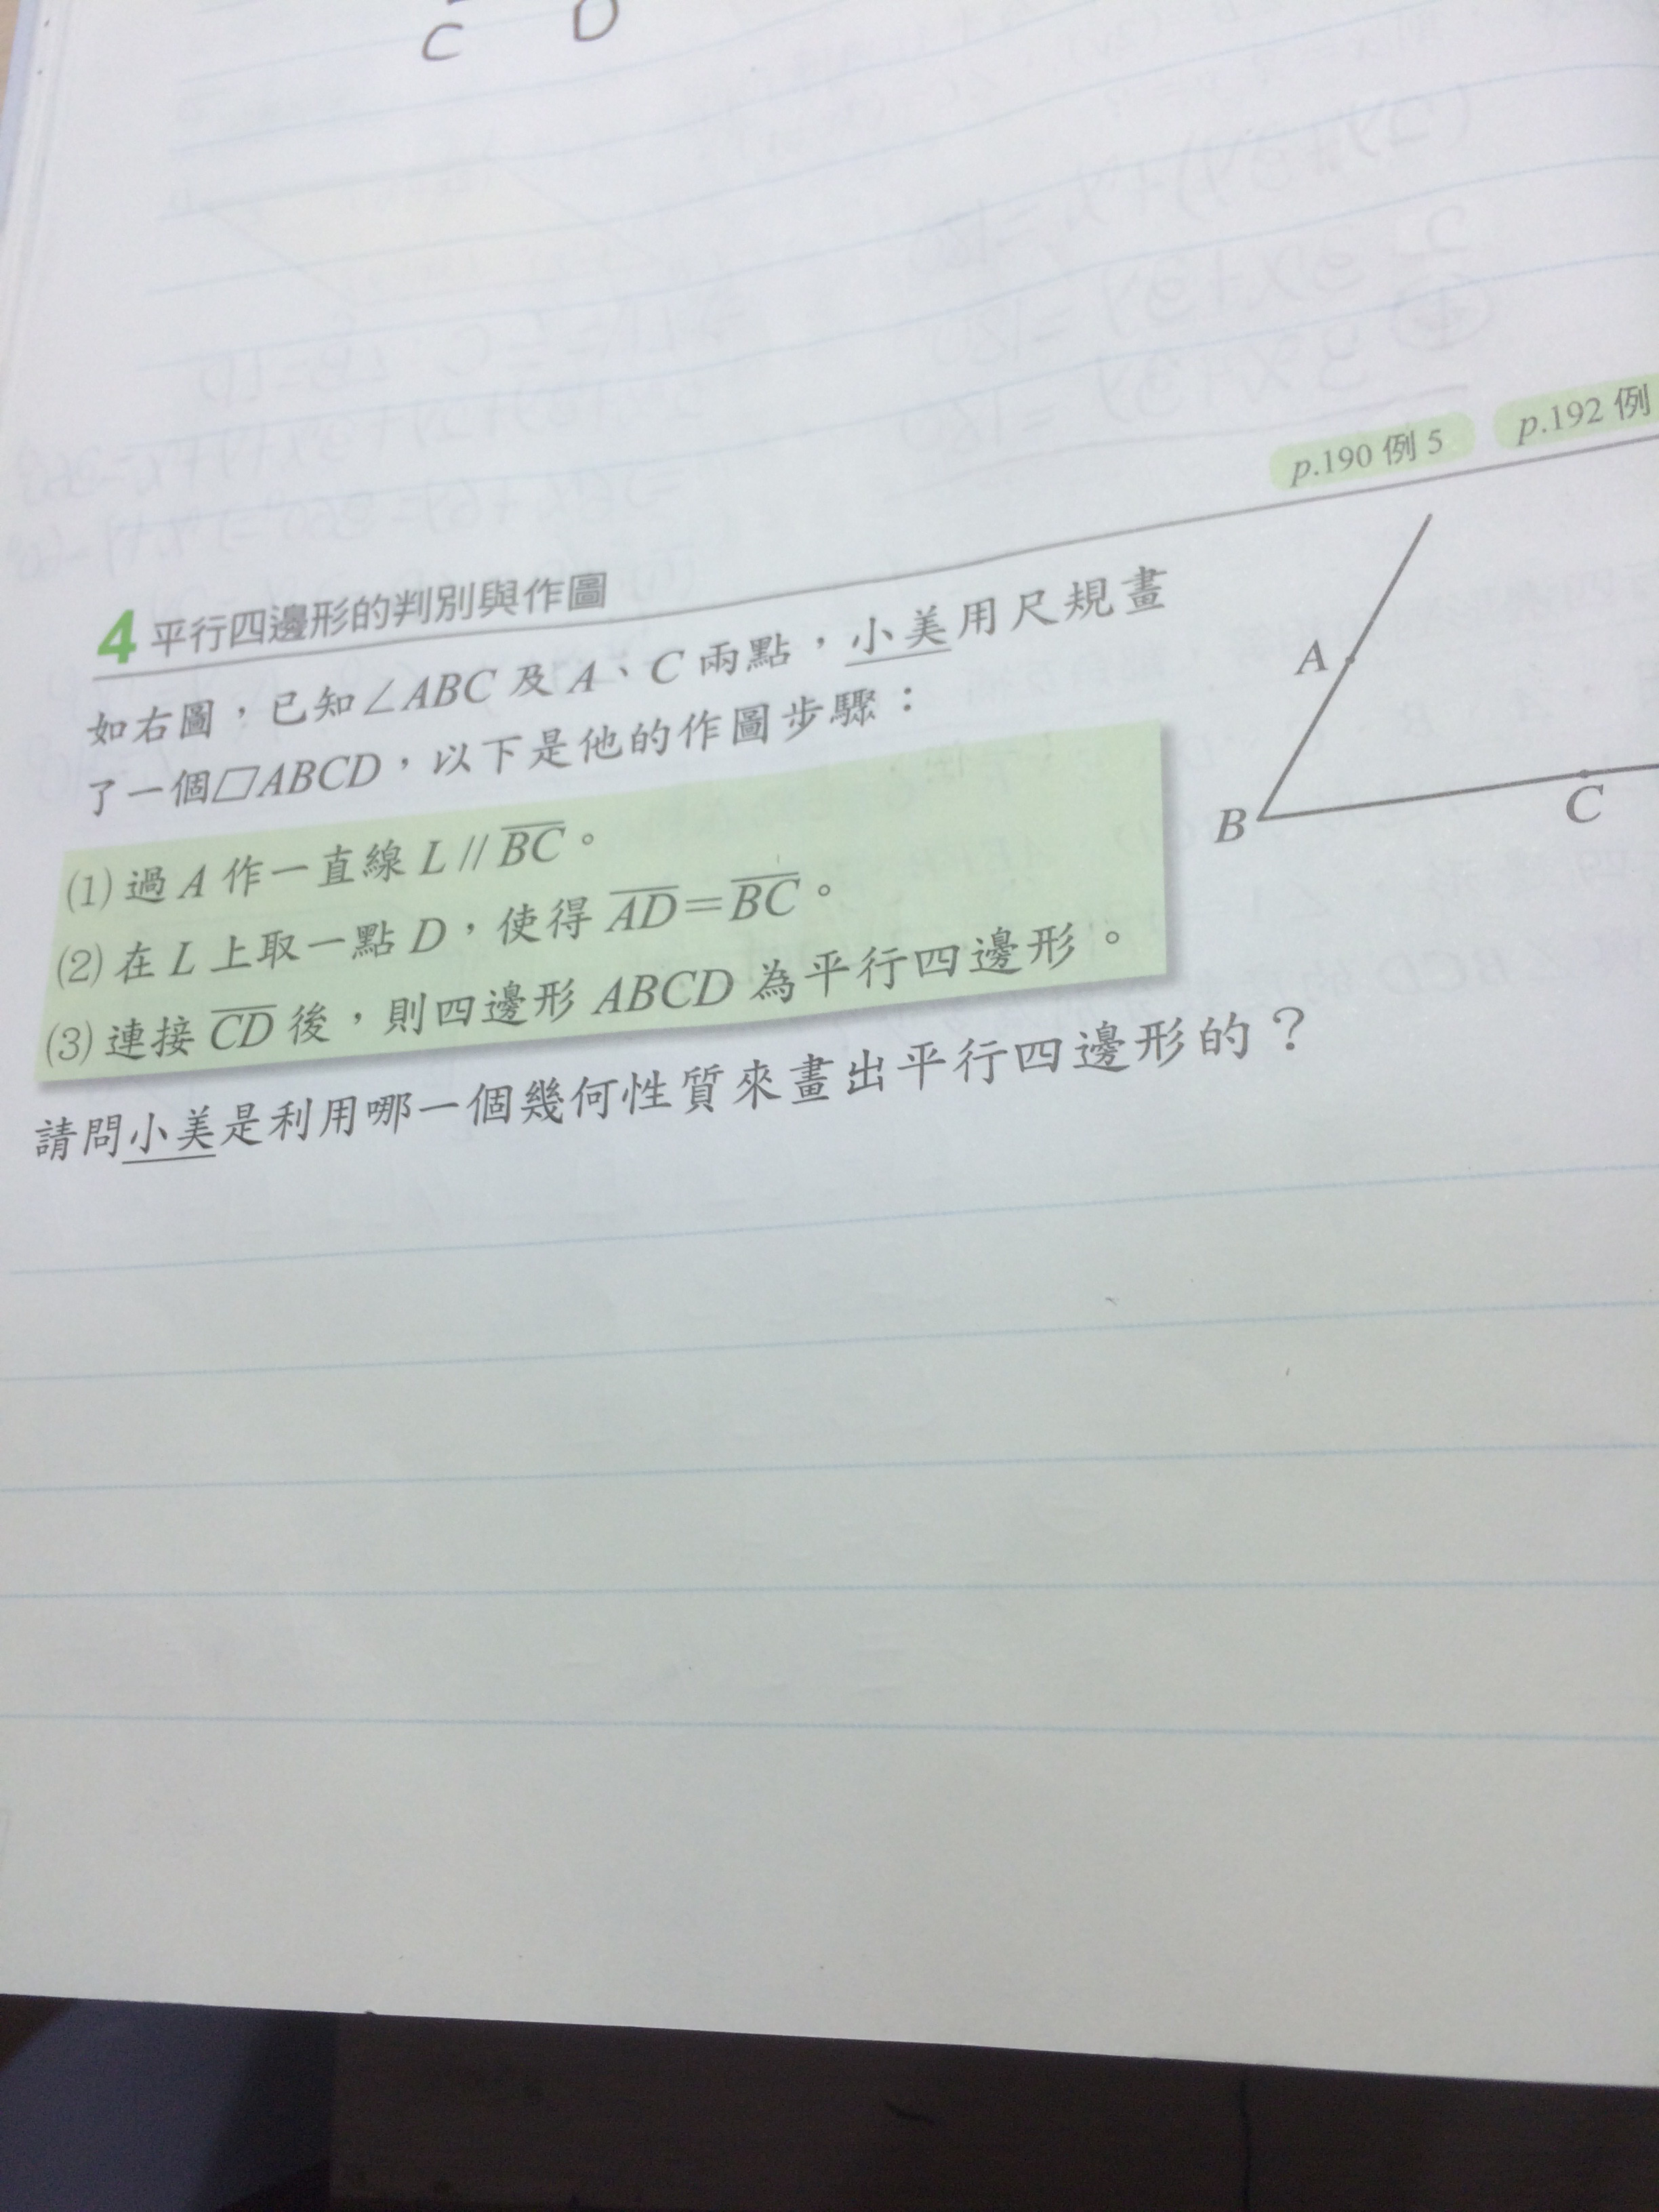 C D
p.190 例 5 p.192 例
4 平行四邊形的判別與作圖
如右圖，已知∠ABC 及 A、C 兩點，小美用尺規畫
了一個▱ABCD，以下是他的作圖步驟：
(1) 過 A 作一直線 L // BC。
(2) 在 L 上取一點 D，使得 AD＝BC。
(3) 連接 CD 後，則四邊形 ABCD 為平行四邊形。
請問小美是利用哪一個幾何性質來畫出平行四邊形的？
A
B
C